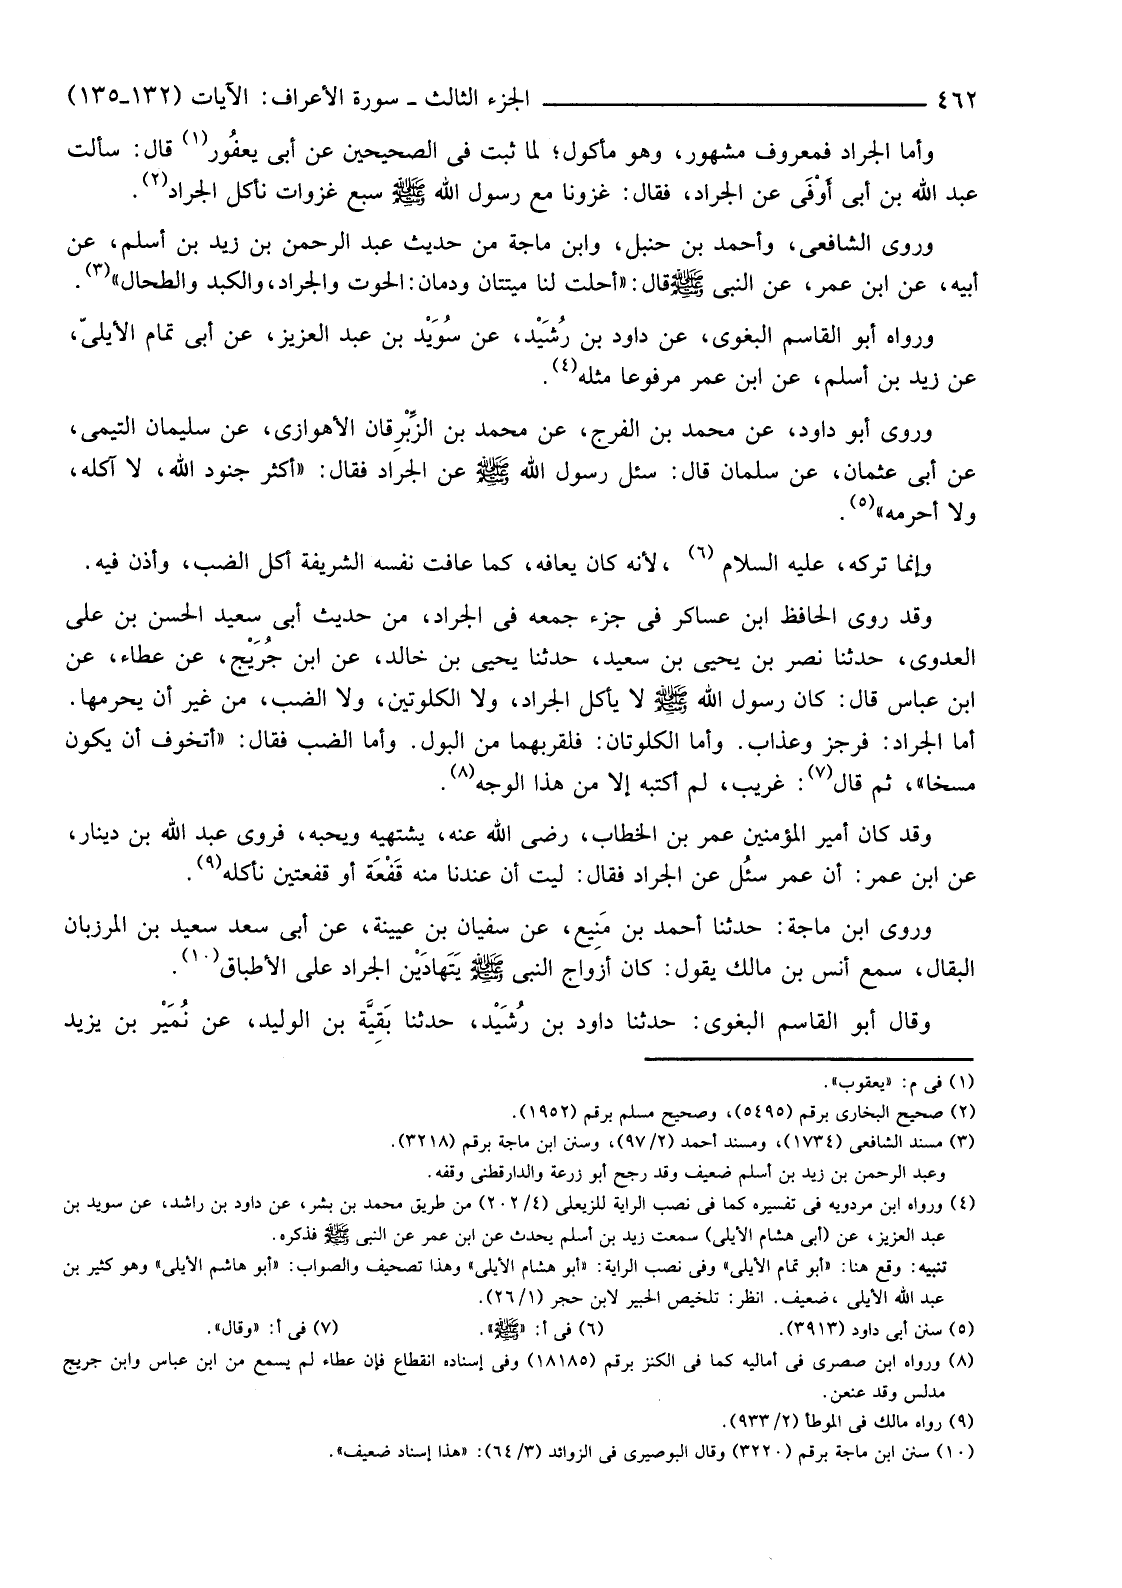 ٤٦٢ ـــــــــــــــــــــــــــ الجزء الثالث ـ سورة الأعراف: الآيات (١٣٢ـ١٣٥)
وأما الجراد فمعروف مشهور، وهو مأكول؛ لما ثبت فى الصحيحين عن أبى يعفُور(١) قال: سألت
عبد الله بن أبى أَوْفَى عن الجراد، فقال: غزونا مع رسول الله ﷺ سبع غزوات نأكل الجراد(٢).
وروى الشافعى، وأحمد بن حنبل، وابن ماجة من حديث عبد الرحمن بن زيد بن أسلم، عن
أبيه، عن ابن عمر، عن النبى ﷺ قال: «أحلت لنا ميتتان ودمان: الحوت والجراد، والكبد والطحال»(٣).
ورواه أبو القاسم البغوى، عن داود بن رُشَيْد، عن سوُيَدْ بن عبد العزيز، عن أبى تمام الأيلىّ،
عن زيد بن أسلم، عن ابن عمر مرفوعا مثله(٤).
وروى أبو داود، عن محمد بن الفرج، عن محمد بن الزِّبْرِقان الأهوازى، عن سليمان التيمى،
عن أبى عثمان، عن سلمان قال: سئل رسول الله ﷺ عن الجراد فقال: «أكثر جنود الله، لا آكله،
ولا أحرمه»(٥).
وإنما تركه، عليه السلام (٦) ، لأنه كان يعافه، كما عافت نفسه الشريفة أكل الضب، وأذن فيه.
وقد روى الحافظ ابن عساكر فى جزء جمعه فى الجراد، من حديث أبى سعيد الحسن بن على
العدوى، حدثنا نصر بن يحيى بن سعيد، حدثنا يحيى بن خالد، عن ابن جُرَيْج، عن عطاء، عن
ابن عباس قال: كان رسول الله ﷺ لا يأكل الجراد، ولا الكلوتين، ولا الضب، من غير أن يحرمها.
أما الجراد: فرجز وعذاب. وأما الكلوتان: فلقربهما من البول. وأما الضب فقال: «أتخوف أن يكون
مسخا»، ثم قال(٧): غريب، لم أكتبه إلا من هذا الوجه(٨).
وقد كان أمير المؤمنين عمر بن الخطاب، رضى الله عنه، يشتهيه ويحبه، فروى عبد الله بن دينار،
عن ابن عمر: أن عمر سئُل عن الجراد فقال: ليت أن عندنا منه قَفْعَة أو قفعتين نأكله(٩).
وروى ابن ماجة: حدثنا أحمد بن مَنِيع، عن سفيان بن عيينة، عن أبى سعد سعيد بن المرزبان
البقال، سمع أنس بن مالك يقول: كان أزواج النبى ﷺ يَتَهادَيْن الجراد على الأطباق(١٠).
وقال أبو القاسم البغوى: حدثنا داود بن رُشَيْد، حدثنا بَقِيَّة بن الوليد، عن نُمَيْر بن يزيد
(١) فى م: «يعقوب».
(٢) صحيح البخارى برقم (٥٤٩٥)، وصحيح مسلم برقم (١٩٥٢).
(٣) مسند الشافعى (١٧٣٤)، ومسند أحمد (٢/ ٩٧)، وسنن ابن ماجة برقم (٣٢١٨).
وعبد الرحمن بن زيد بن أسلم ضعيف وقد رجح أبو زرعة والدارقطنى وقفه.
(٤) ورواه ابن مردويه فى تفسيره كما فى نصب الراية للزيعلى (٤/ ٢٠٢) من طريق محمد بن بشر، عن داود بن راشد، عن سويد بن
عبد العزيز، عن (أبى هشام الأيلى) سمعت زيد بن أسلم يحدث عن ابن عمر عن النبى ﷺ فذكره.
تنبيه: وقع هنا: «أبو تمام الأيلى» وفى نصب الراية: «أبو هشام الأيلى» وهذا تصحيف والصواب: «أبو هاشم الأيلى» وهو كثير بن
عبد الله الأيلى ،ضعيف. انظر: تلخيص الحبير لابن حجر (١/ ٢٦).
(٥) سنن أبى داود (٣٩١٣). (٦) فى أ: «ﷺ». (٧) فى أ: «وقال».
(٨) ورواه ابن صصرى فى أماليه كما فى الكنز برقم (١٨١٨٥) وفى إسناده انقطاع فإن عطاء لم يسمع من ابن عباس وابن جريج
مدلس وقد عنعن.
(٩) رواه مالك فى الموطأ (٢/ ٩٣٣).
(١٠) سنن ابن ماجة برقم (٣٢٢٠) وقال البوصيرى فى الزوائد (٣/ ٦٤): «هذا إسناد ضعيف».